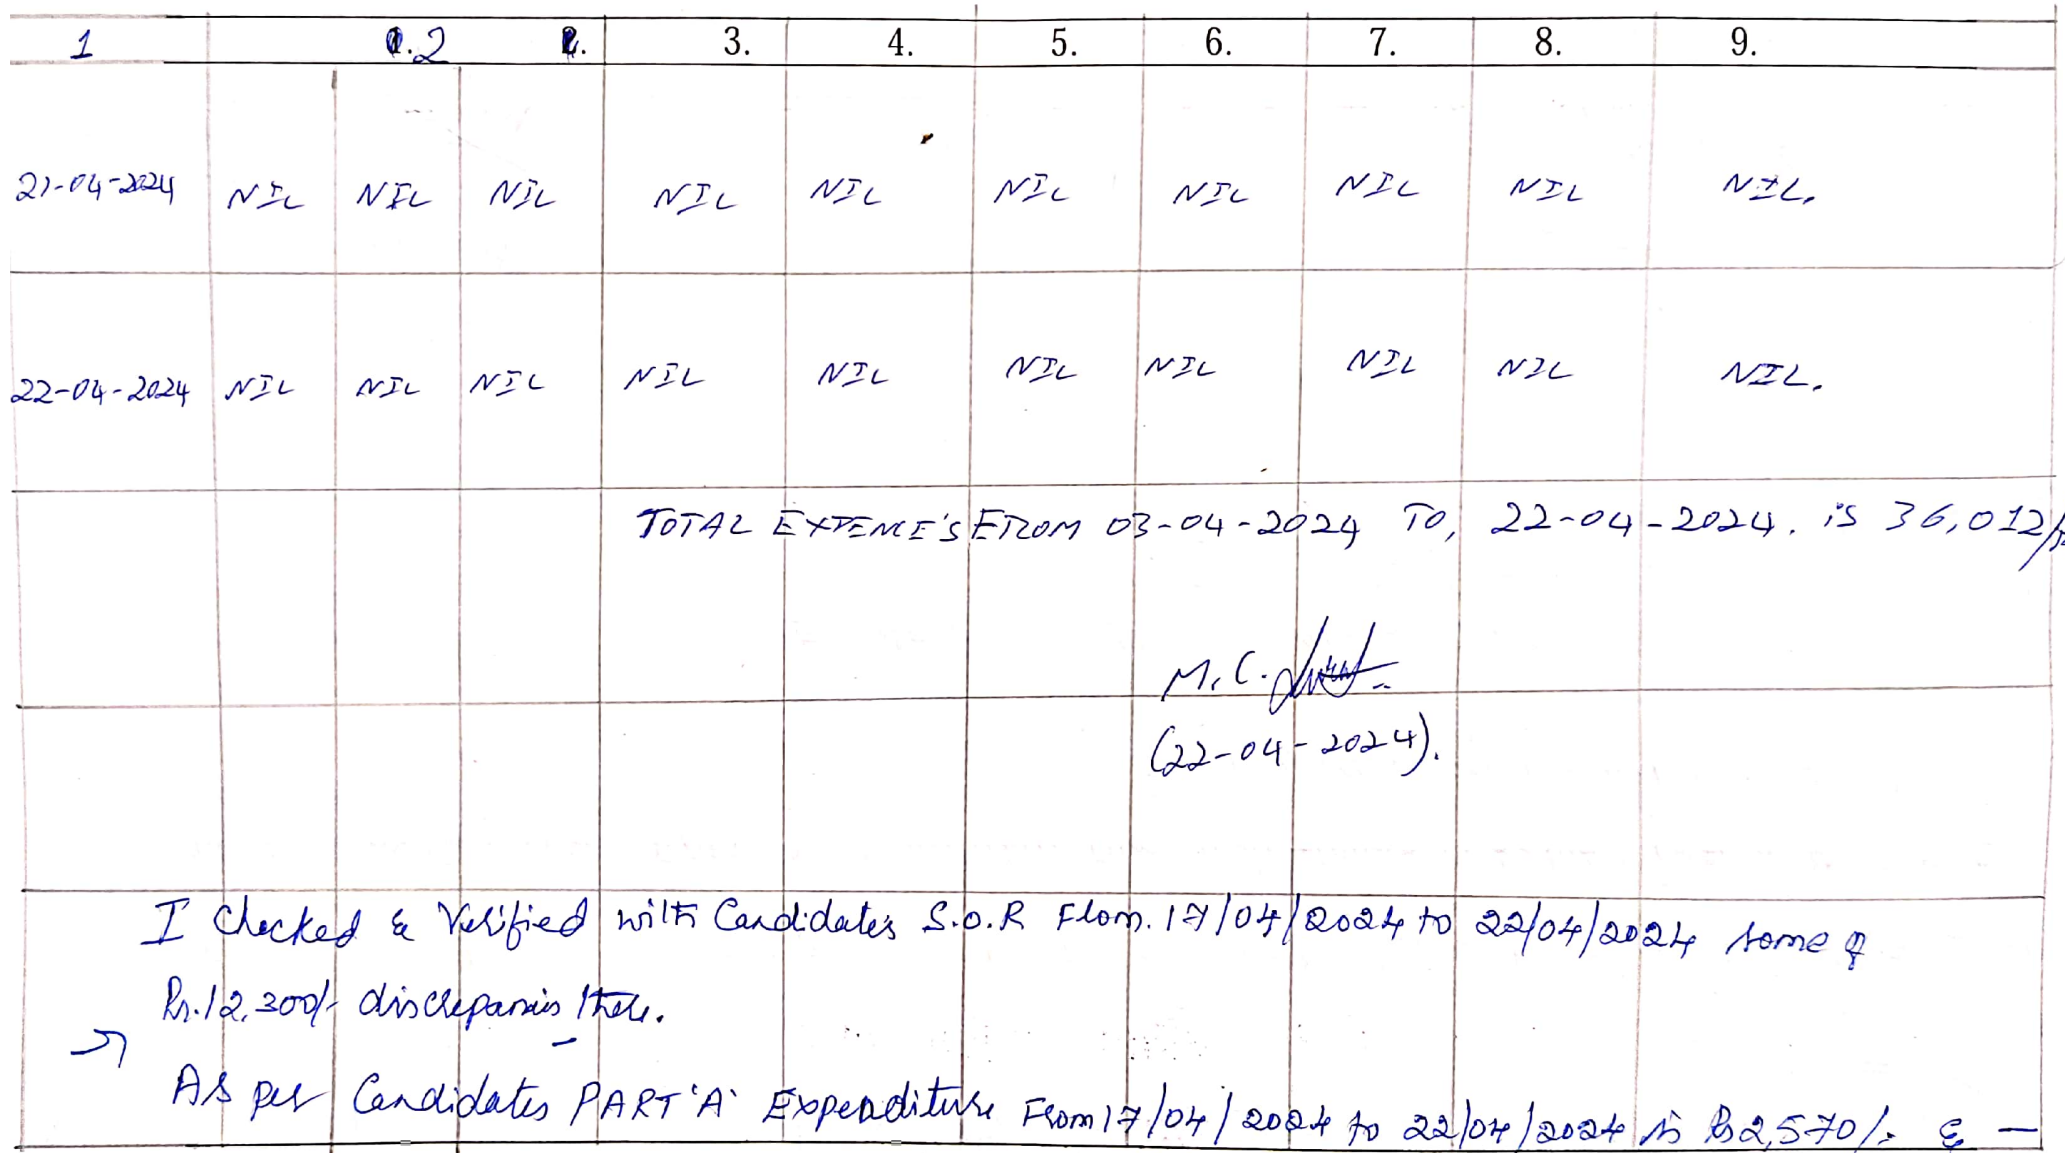 1 1.2 2. 3. 4. 5. 6. 7. 8. 9.
21-04-2024 NIL NIL NIL NIL NIL NIL NIL NIL NIL NIL.
22-04-2024 NIL NIL NIL NIL NIL NIL NIL NIL NIL NIL.
TOTAL EXPENCE'S FROM 03-04-2024 TO, 22-04-2024. is 36,012/-
M.C.
(22-04-2024).
I Checked & Verified with Candidate's S.O.R From. 17/04/2024 to 22/04/2024 some of
Rs.12,300/- discrepancies there.
As per Candidates PART 'A' Expenditure From 17/04/2024 to 22/04/2024 is Rs 2,570/- & —